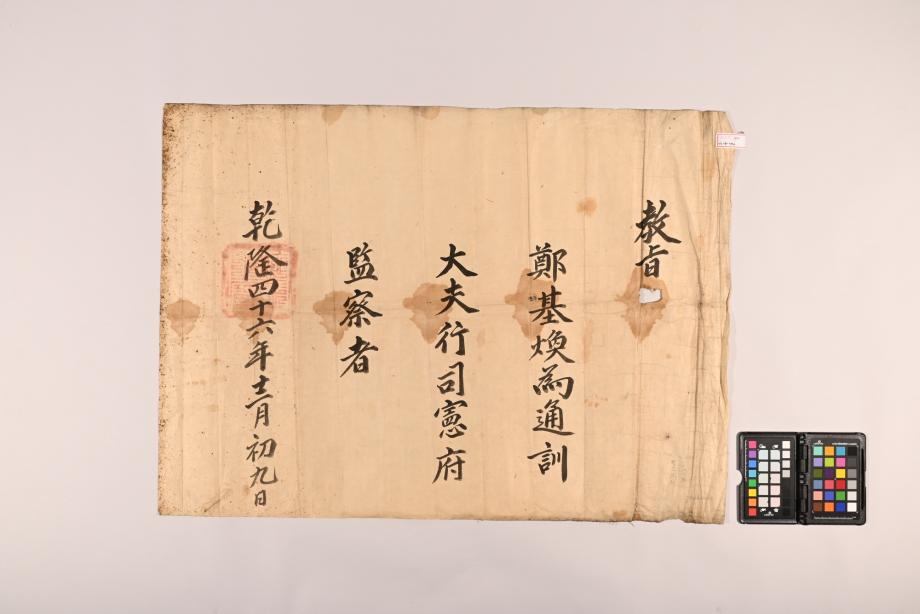 教旨
鄭基煥為通訓
大夫行司憲府
監察者
乾隆四十六年十二月初九日